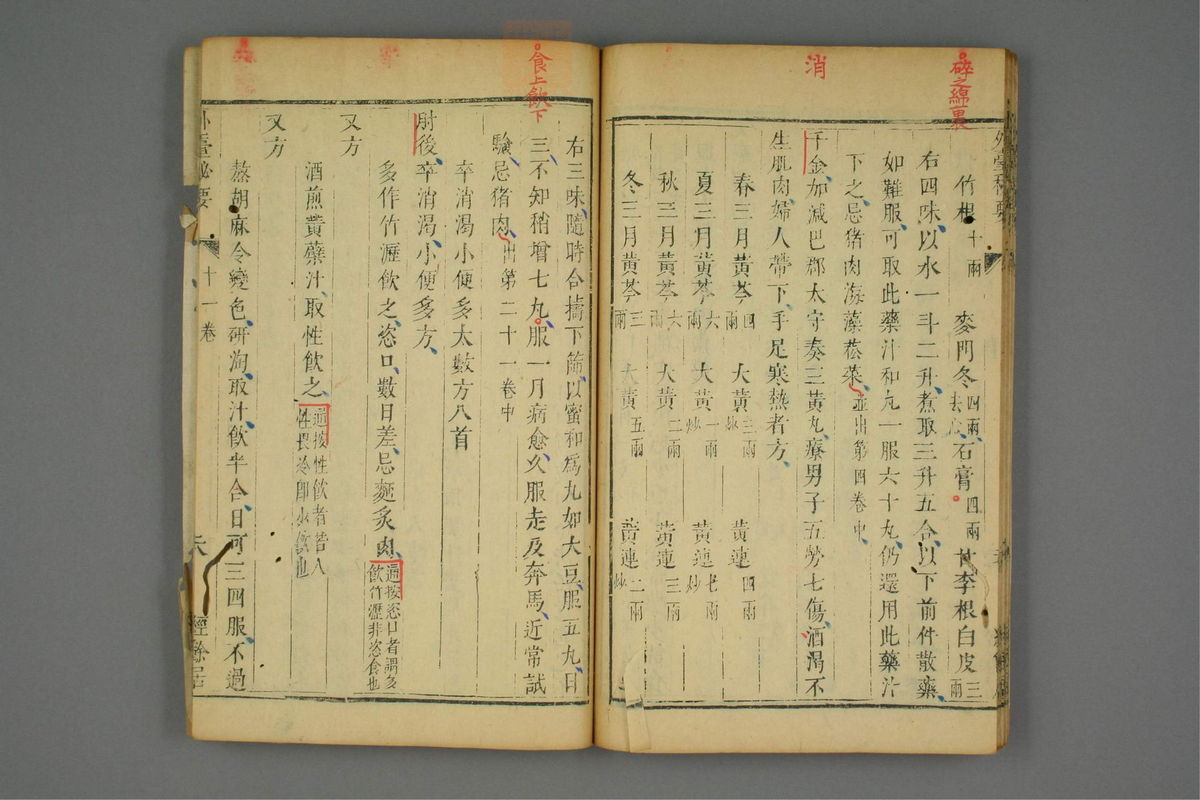 碎之綿裹
消
食上飲下
竹根十兩 麥門冬四兩去心 石膏四兩 甘李根白皮三兩
右四味以水一斗二升煮取三升五合以下前件散藥
如難服可取此藥汁和丸一服六十丸仍還用此藥汁
下之忌猪肉海藻菘菜並出第四卷中
千金加減巴郡太守奏三黃丸療男子五勞七傷消渴不
生肌肉婦人帶下手足寒熱者方
春三月黃芩四兩 大黃三兩炒 黃連四兩
夏三月黃芩六兩 大黃一兩炒 黃連七兩炒
秋三月黃芩六兩 大黃二兩 黃連三兩
冬三月黃芩三兩 大黃五兩 黃連二兩炒
右三味隨時合擣下篩以蜜和為丸如大豆服五丸日
三不知稍增七丸服一月病愈久服走及奔馬近常試
驗忌猪肉出第二十一卷中
卒消渴小便多太數方八首
肘後卒消渴小便多方
多作竹瀝飲之恣口數日差忌麪炙肉
逎按恣口者謂多
飲竹瀝非恣食也
又方
酒煎黃蘗汁取性飲之
逎按性飲者若人
性畏冷即少飲也
又方
熬胡麻令變色研淘取汁飲半合日可三四服不過
外臺秘要 十一卷 經餘居